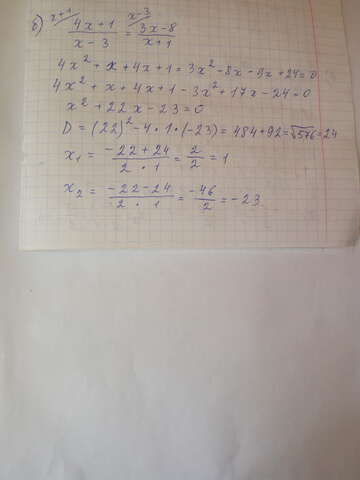 б) x+1 / 4x+1 / x-3 = x-3 / 3x-8 / x+1
4x² + x + 4x + 1 = 3x² - 8x - 9x + 24 = 0
4x² + x + 4x + 1 - 3x² + 17x - 24 = 0
x² + 22x - 23 = 0
D = (22)² - 4 · 1 · (-23) = 484 + 92 = √576 = 24
x₁ = -22 + 24 / 2 · 1 = 2 / 2 = 1
x₂ = -22 - 24 / 2 · 1 = -46 / 2 = -23